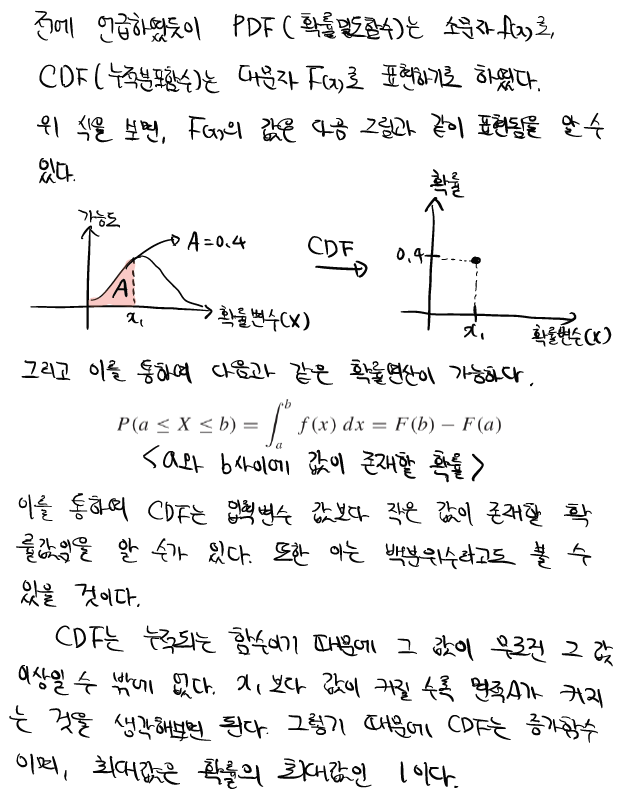 전에 언급하였듯이 PDF(확률밀도함수)는 소문자 f(x)로,
CDF(누적분포함수)는 대문자 F(x)로 표현하기로 하였다.
위 식을 보면, F(x)의 값은 다음 그림과 같이 표현됨을 알 수
있다.
가능도
A=0.4
A
x₁
확률변수(X)
CDF
확률
0.4
x₁
확률변수(X)
그리고 이를 통하여 다음과 같은 확률연산이 가능하다.
P(a ≤ X ≤ b) = ∫_a^b f(x) dx = F(b) − F(a)
<a와 b사이에 값이 존재할 확률>
이를 통하여 CDF는 입력변수 값보다 작은 값이 존재할 확
률값임을 알 수가 있다. 또한 이는 백분위수라고도 볼 수
있을 것이다.
CDF는 누적되는 함수이기 때문에 그 값이 무조건 그 값
이상일 수 밖에 없다. x₁보다 값이 커질 수록 면적A가 커지
는 것을 생각해보면 된다. 그렇기 때문에 CDF는 증가함수
이며, 최대값은 확률의 최대값인 1이다.